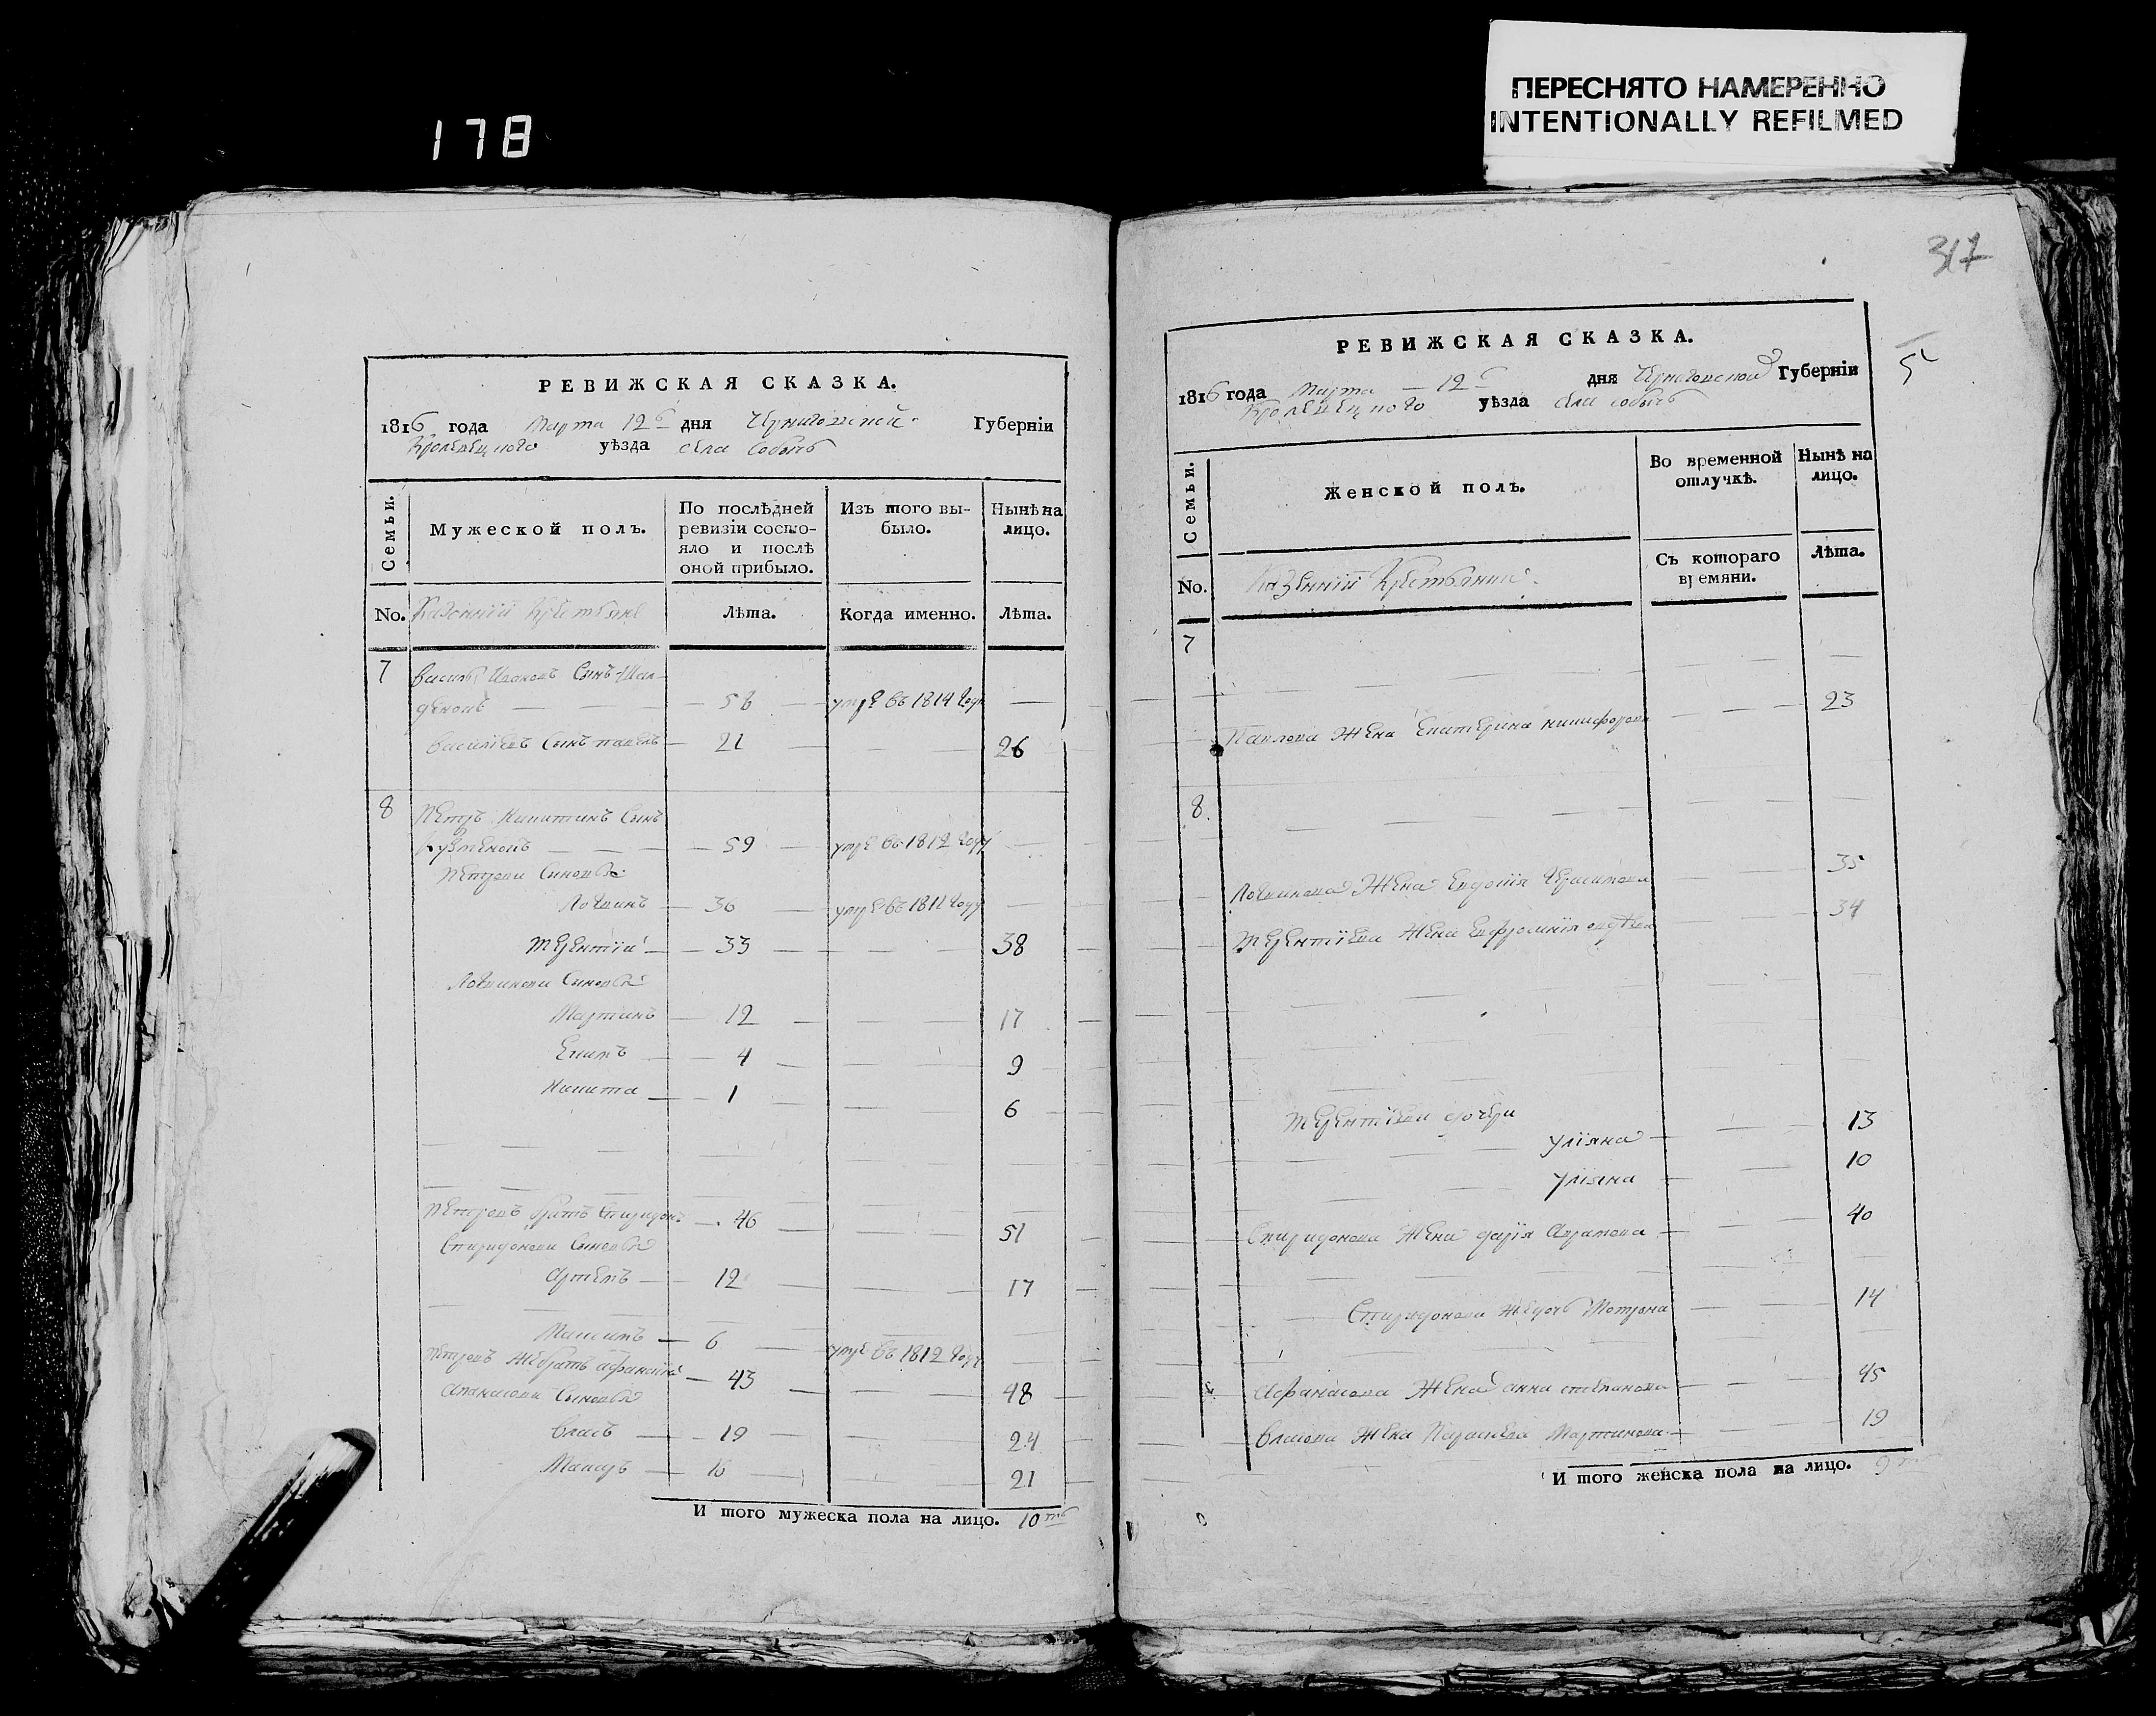 178
ПЕРЕСНЯТО НАМЕРЕННО
INTENTIONALLY REFILMED
РЕВИЖСКАЯ СКАЗКА.
1816 года Марта 12 дня Черниговской Губерніи
Кролевецкого уѣзда села Собычь
Семьи.
Мужеской полъ.
По послѣдней
ревизіи состо-
яло и послѣ
оной прибыло.
Изъ того вы-
было.
Нынѣ на
лицо.
No. Казенніи Крестьяне
Лѣта.
Когда именно.
Лѣта.
7 Василь Ивановъ Сынъ
58 умре въ 1814 году
Василіевъ Сынъ павелъ 21 26
8 Петръ Никитинъ Сынъ
Кузменокъ 59 умре въ 1812 году
Петрови Синовья
Логвинъ 36 умре въ 1811 году
Терентій 33 38
Логвинови Сыновья
Мартинъ 12 17
Екимъ 4 9
Никита 1 6
Петровъ братъ Спиридонъ 46 51
Спиридонови Сыновья
Артемъ 12 17
Максимъ 6 умре въ 1812 году
Петровъ же братъ афанасій 43 48
Афанасови Сыновья
Власъ 19 24
Макаръ 16 21
И того мужеска пола на лицо. 10
317
5
РЕВИЖСКАЯ СКАЗКА.
1816 года Марта 12 дня Черниговской Губерніи
Кролевецкого уѣзда села собычь
Семьи.
Женской полъ.
Во временной
отлучкѣ.
Нынѣ на
лицо.
No. Казенніи Крестьянки
Съ котораго
времяни.
Лѣта.
7
Павлова Жена Екатерина никифорова 23
8.
Логвинова Жена Евдокія 35
Терентіева жена Евфросинія 34
Терентіеви дочери
Уліяна 13
Уліяна 10
Спиридонова Жена дарія Аврамова 40
Спиридонова же дочь Мотрона 14
Афанасова Жена анна степанова 45
Власова жена Параскева Мартинова 19
И того женска пола на лицо. 9